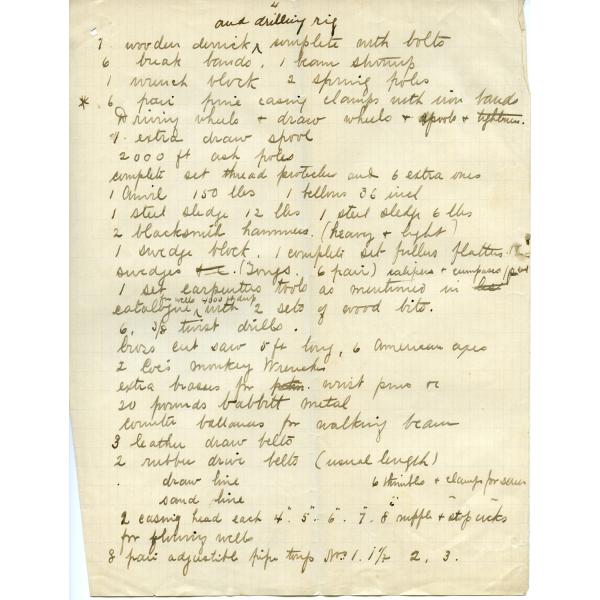 and drilling rig
7 wooden derrick ^ complete with bolts
6 break bands, 1 beam stirrup
1 wrench block 2 spring poles
* 6 pair pine casing clamps with iron bands
Driving wheels + draw wheels + spools +
extra draw spool
2000 ft ash poles
complete set thread protector and 6 extra ones
1 Anvil 150 lbs 1 bellows 36 inch
1 steel sledge 12 lbs 1 steel sledge 6 lbs
2 blacksmith hammers. (heavy + light)
1 swedge block. 1 complete set fullers flatters
swedges (Tongs. 6 pair) calipers + compasses
1 set carpenters tools as mentioned in
for wells 4000 ft deep
catalogue ^ with 2 sets of wood bits.
6, 3/8 twist drills.
Cross cut saw 5 ft long, 6 American axes
2 Coe's monkey Wrenches
extra brasses for wrist pins or
20 pounds babbitt metal
counter ballances for walking beam
3 leather draw belts
2 rubber drive belts (usual length)
draw line 6 thimbles + clamps for same
sand line
2 casing head each 4". 5". 6". 7. 8" nipple + stopcocks
for flowing wells
8 pair adjustible pipe tongs Nos. 1. 1½ 2. 3.